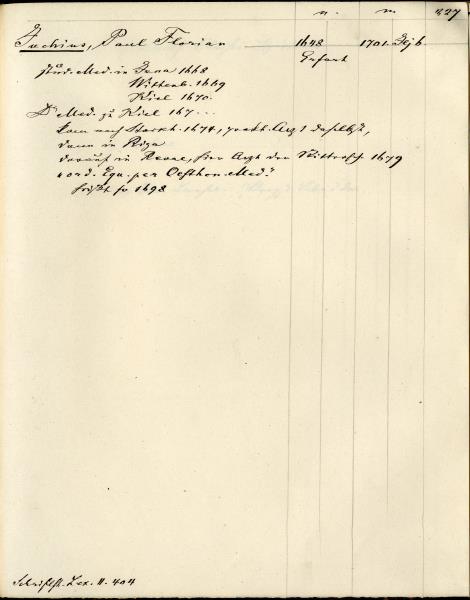 n. m. 327
Fuchius, Paul Florian 1648 1701. Febr.
Erfurt
stud. Med. in Jena 1668
Wittenb. 1669
Kiel 1670.
Dr Med. zu Kiel 167...
kam nach 1674, pract. Arzt daselbst,
dann in Riga
darauf in Reval, hier Arzt der Ritterschft 1679
"ord. Equ. per Oesthon. Med."
1698
Schriftst. Lex. II. 404